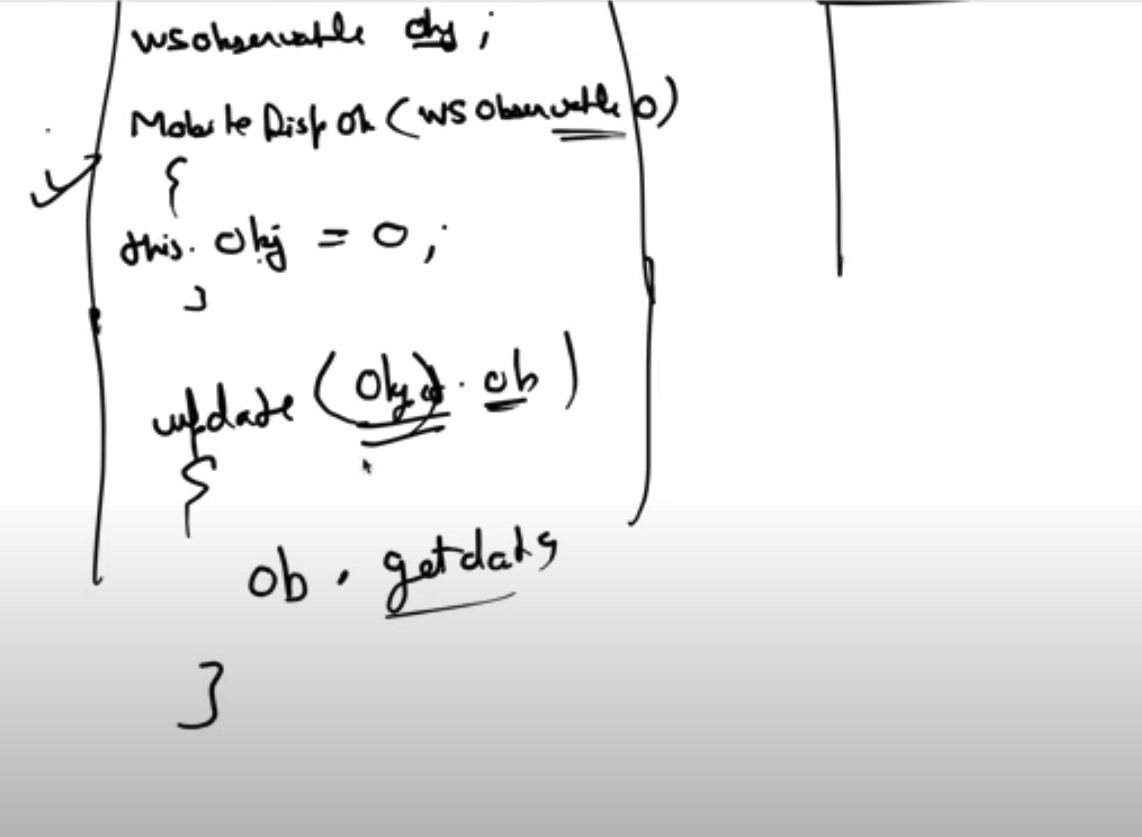 WSobservable obj ;
Mobile Disp Ob (WS Observable O)
{
this. Obj = O ;
}
update (Obj . ob )
{
ob . getdata
}